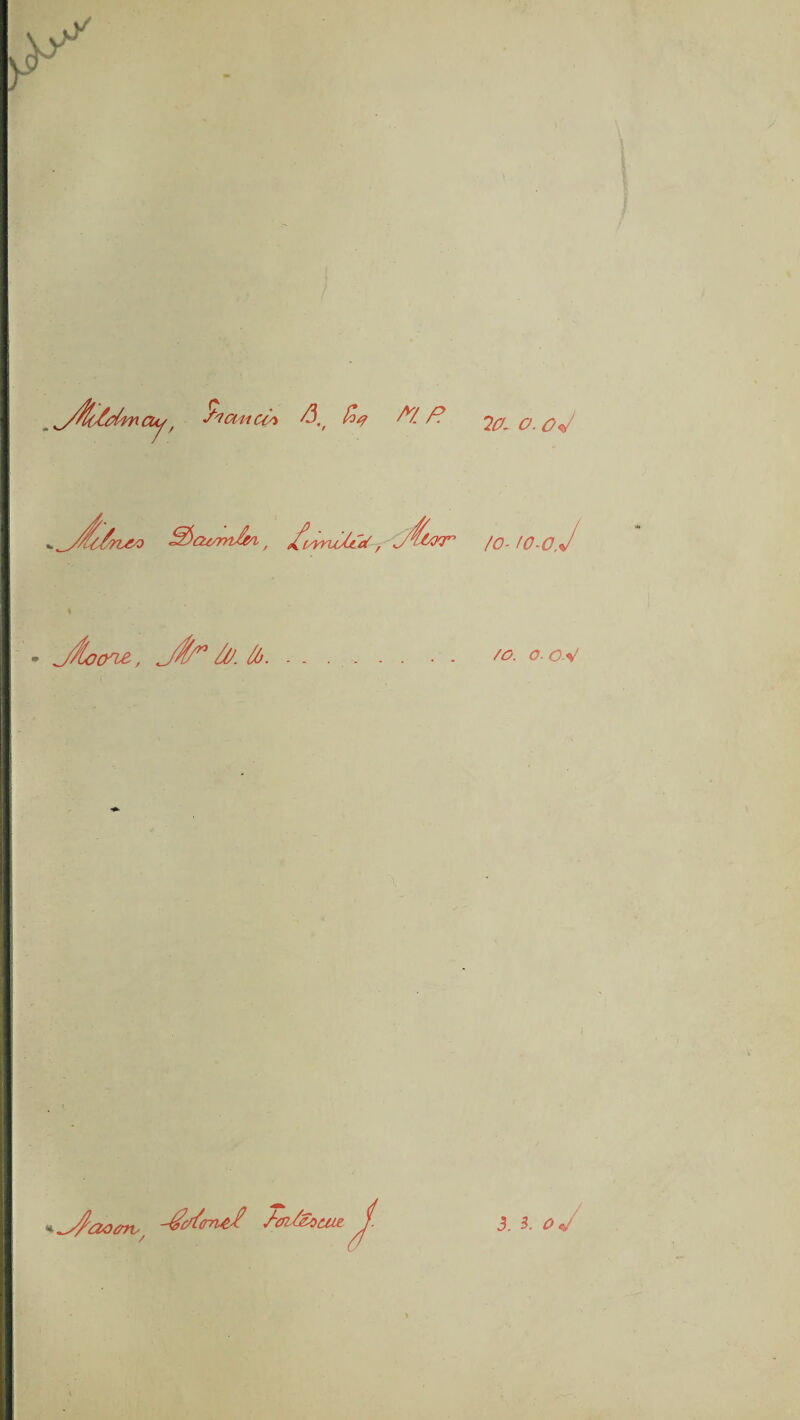 Mildmay, Francis B., Esq M.P. 20. 0. 0√
Milnes Daimler, Limited, Messrs 10-10-0.√
Moore, Mr W. H. .......... 10. 0. 0.√
Nason, Colonel Fortescue J. 3. 3. 0√